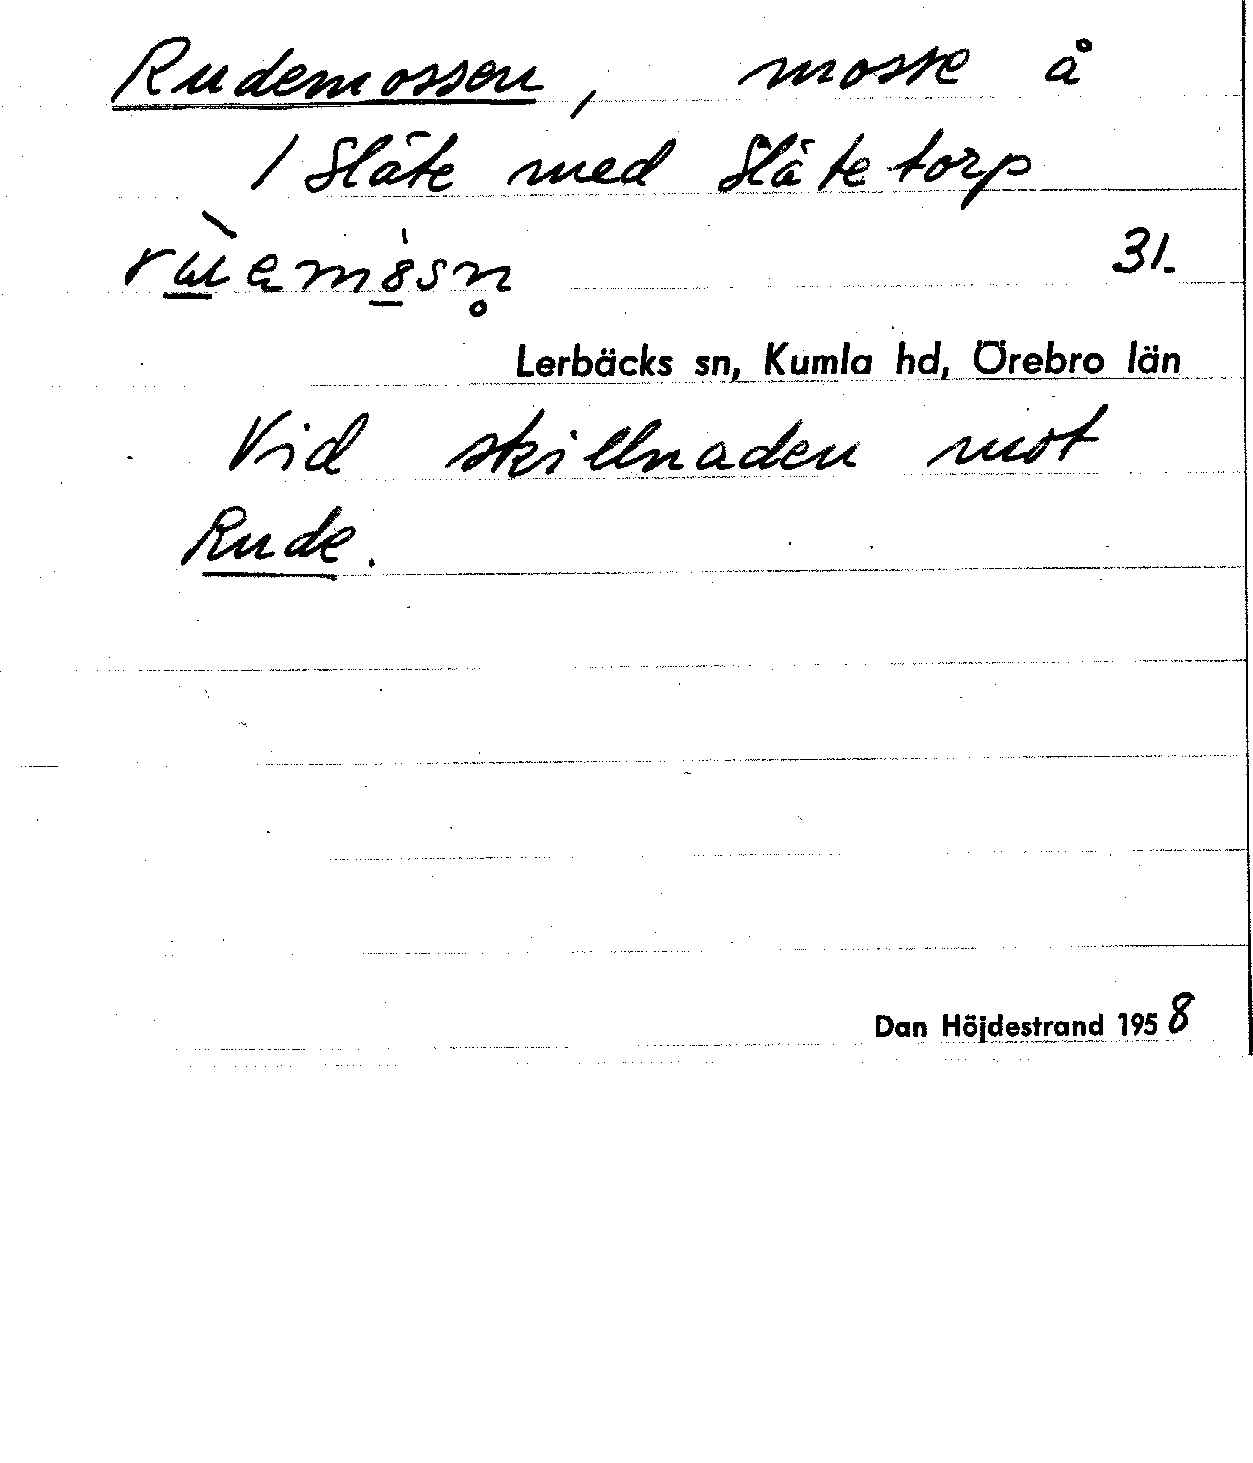 Rudemossen, mosse å
1 Slåte med Slåtetorp
31.
Lerbäcks sn, Kumla hd, Örebro län
Vid skillnaden mot
Rude.
Dan Höjdestrand 1958